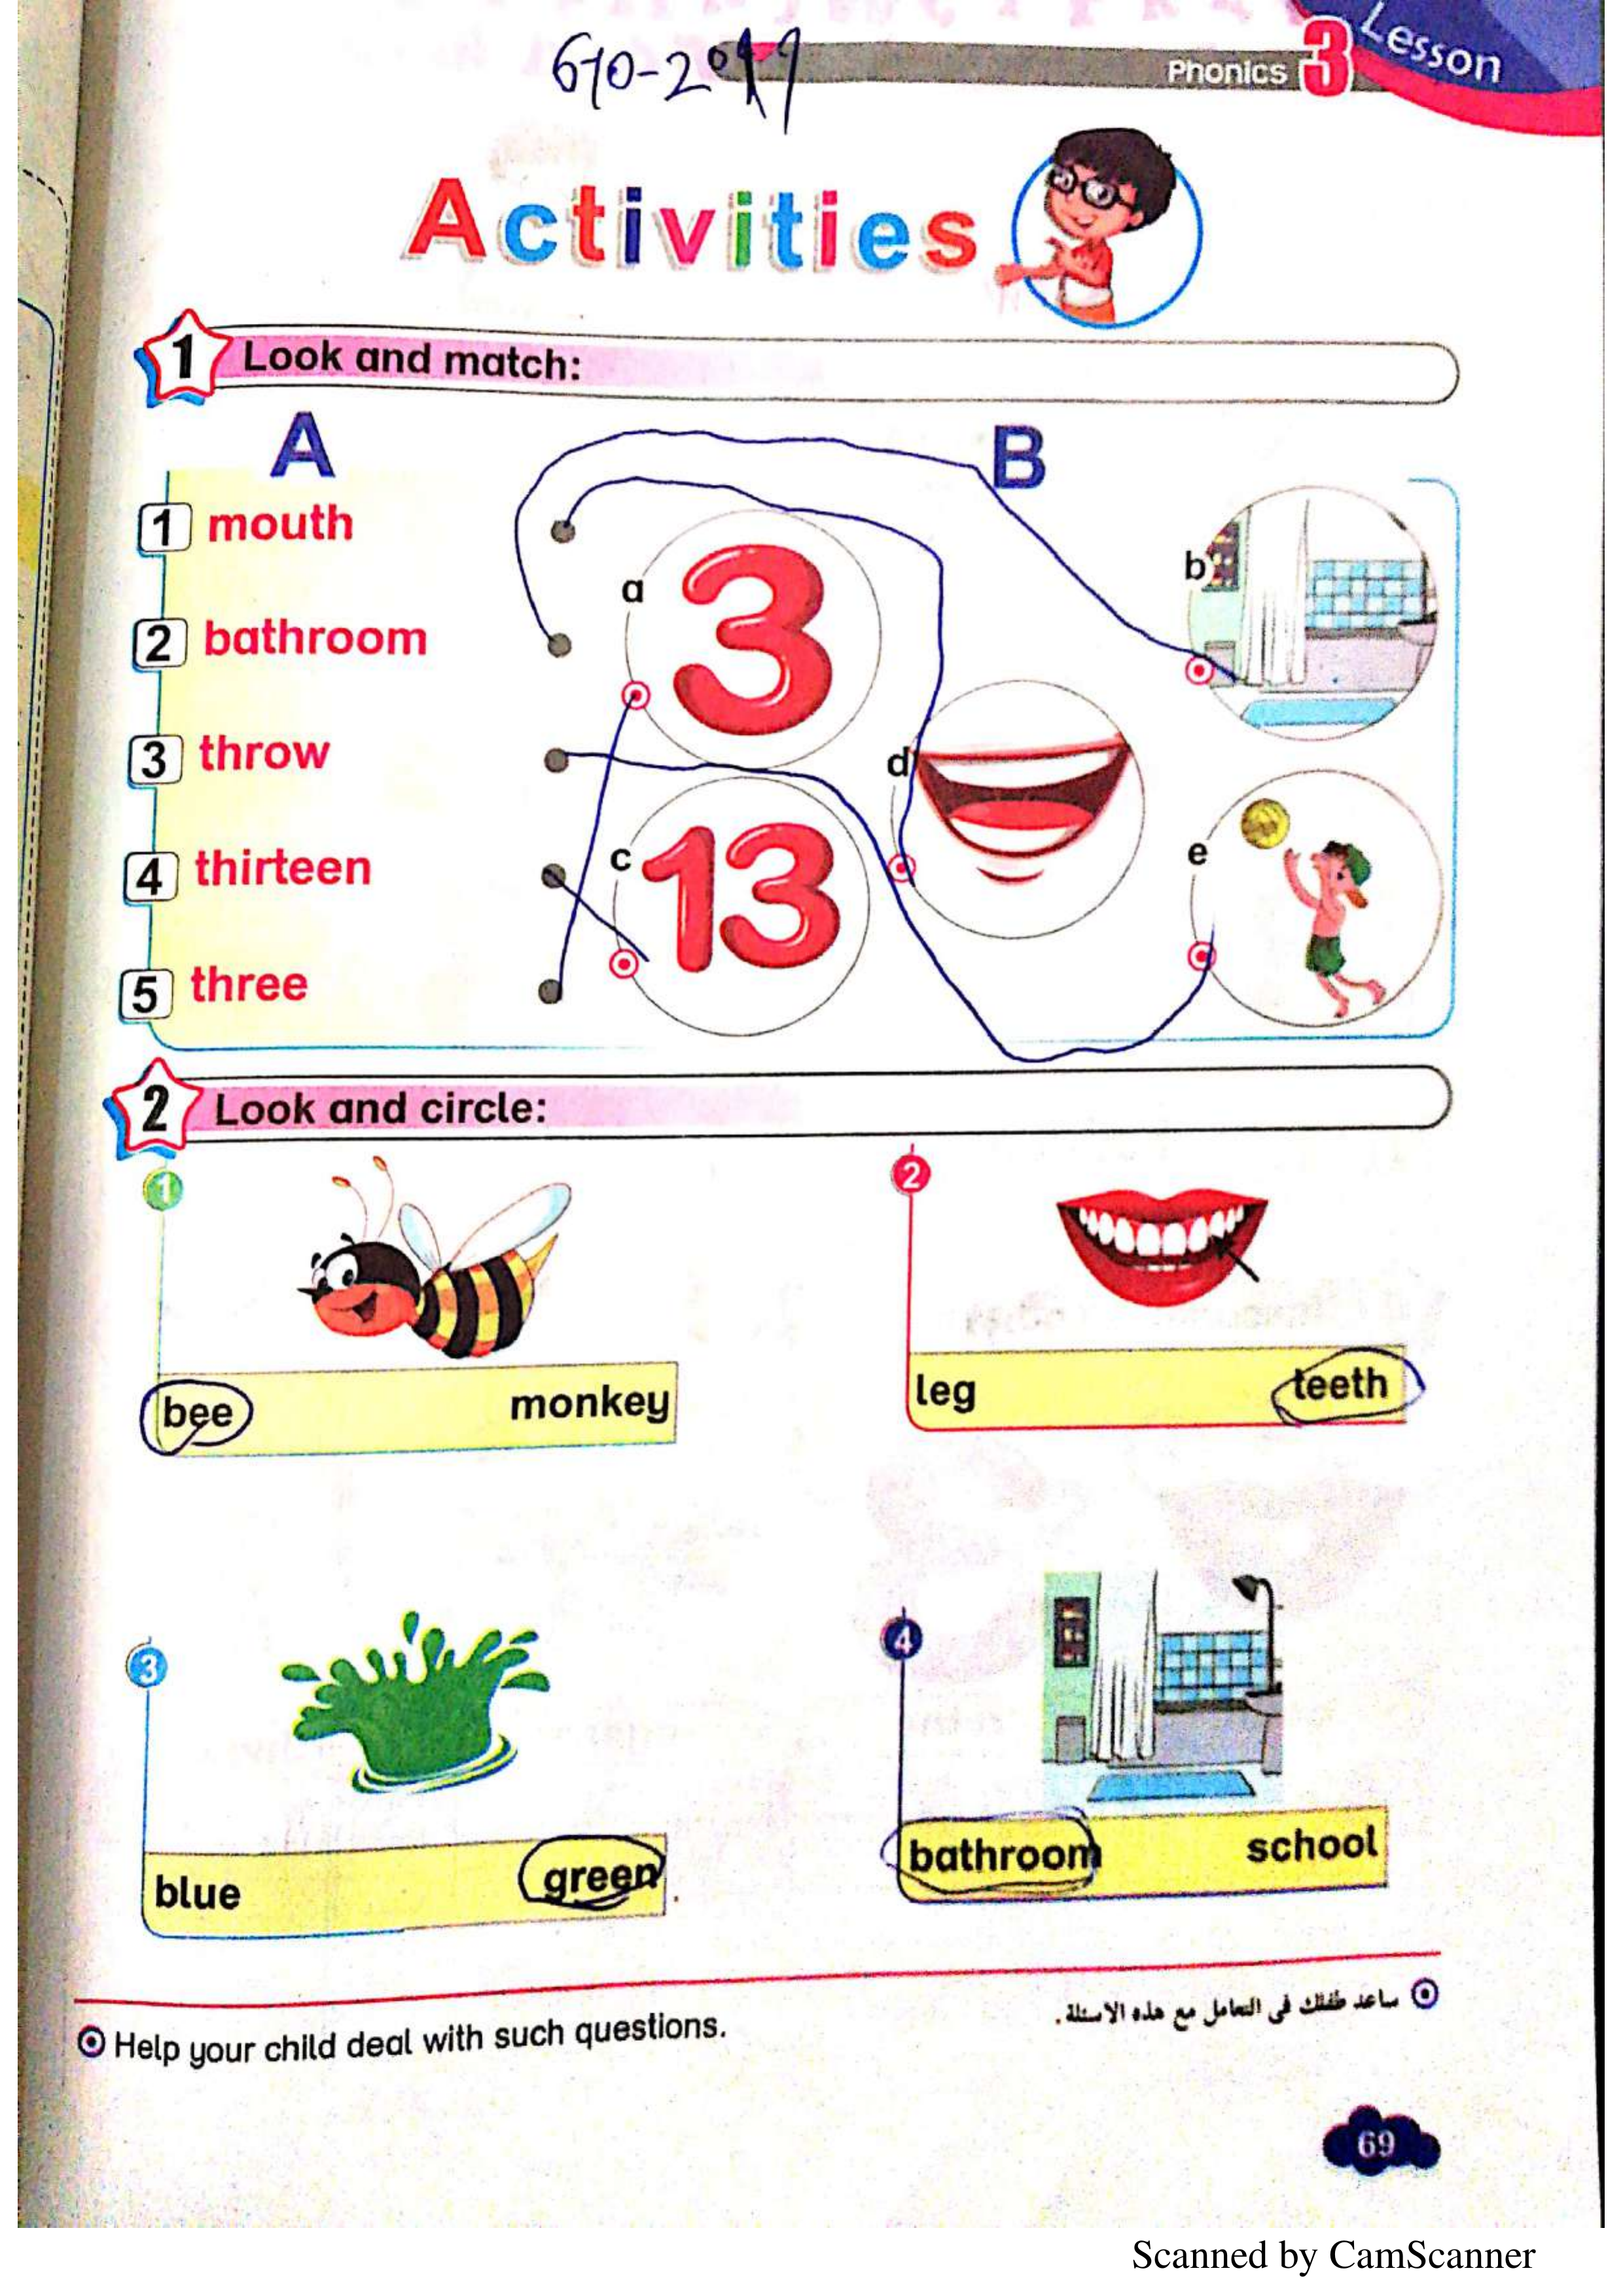 6-10-2019
Phonics 3 Lesson
Activities
1 Look and match:
A
B
1 mouth
2 bathroom
3 throw
4 thirteen
5 three
a
3
b
c
13
d
e
2 Look and circle:
1
bee monkey
2
leg teeth
3
blue green
4
bathroom school
Help your child deal with such questions.
ساعد طفلك فى التعامل مع هذه الاسئلة.
69
Scanned by CamScanner